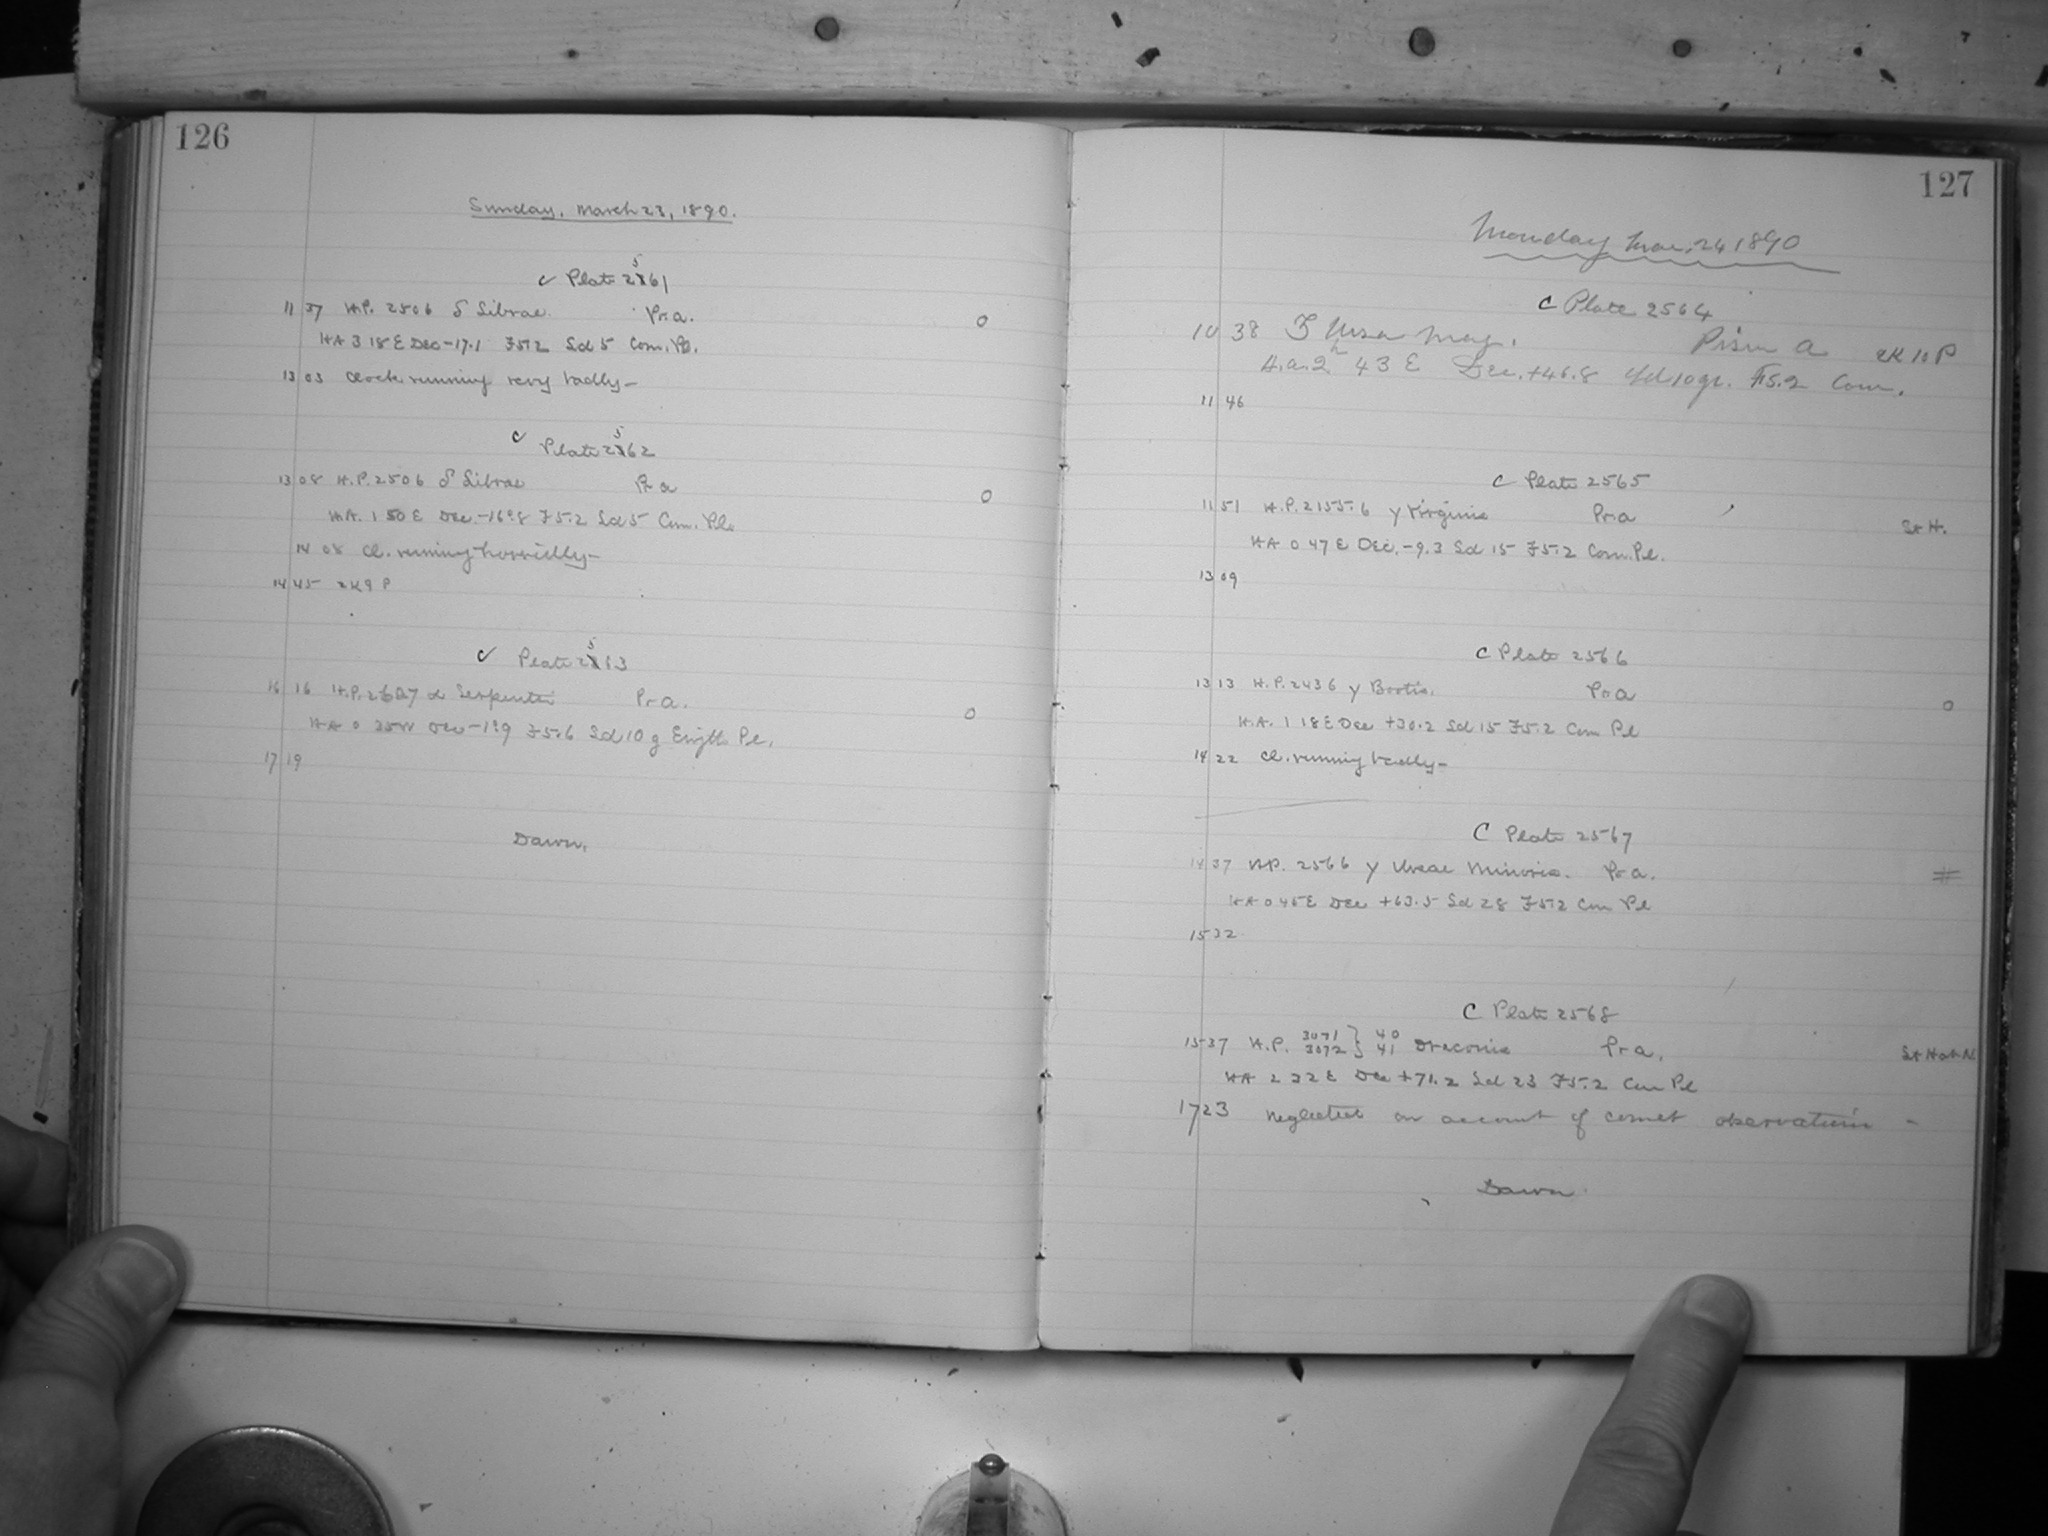 126
Sunday, March 23, 1890.
5
C Plate 2861
11 37 H.P. 2506 δ Librae Pr. a. 0
HA 3 18 E Dec -17.1 F5.2 Sd 5 Com. Pl.
13 03 Clock running very badly —
5
C Plate 2862
13 08 H.P. 2506 δ Librae Pr a 0
H.A. 1 50 E Dec. -16°.8 F5.2 Sd 5 Com. Pl.
14 08 Cl. running horridly —
14 45 2K9 P
5
C Plate 2863
16 16 H.P. α Serpentis Pr a. 0
HA 0 25W Dec -1°.9 F5.6 Sd 10 g Pl.
17 19
Dawn.
127
Monday Mar. 24 1890
C Plate 2564
10 38 Ursa Maj. Prism a 2K 10 P
H.a. 2h 43 E Dec. +46.8 Sd 10 gr. F5.2 Com.
11 46
C Plate 2565
11 51 H.P. 2155.6 γ Virginis Pr a St H.
HA 0 47 E Dec. -9.3 Sd 15 F5.2 Com. Pl.
13 09
C Plate 2566
13 13 H.P. 2436 γ Bootis. Pr a 0
H.A. 1 18 E Dec +30.2 Sd 15 F5.2 Com Pl
14 22 Cl. running badly —
C Plate 2567
14 37 HP. 2566 γ Ursae Minoris. Pr a. #
HA 0 45 E Dec +63.5 Sd 28 F5.2 Com Pl
15 32
C Plate 2568
15 37 H.P. 3071 3072 } 40 41 Draconis Pr a. St H
HA 2 22 E Dec +71.2 Sd 23 F5.2 Com Pl
17 23 neglected on account of comet observations —
Dawn